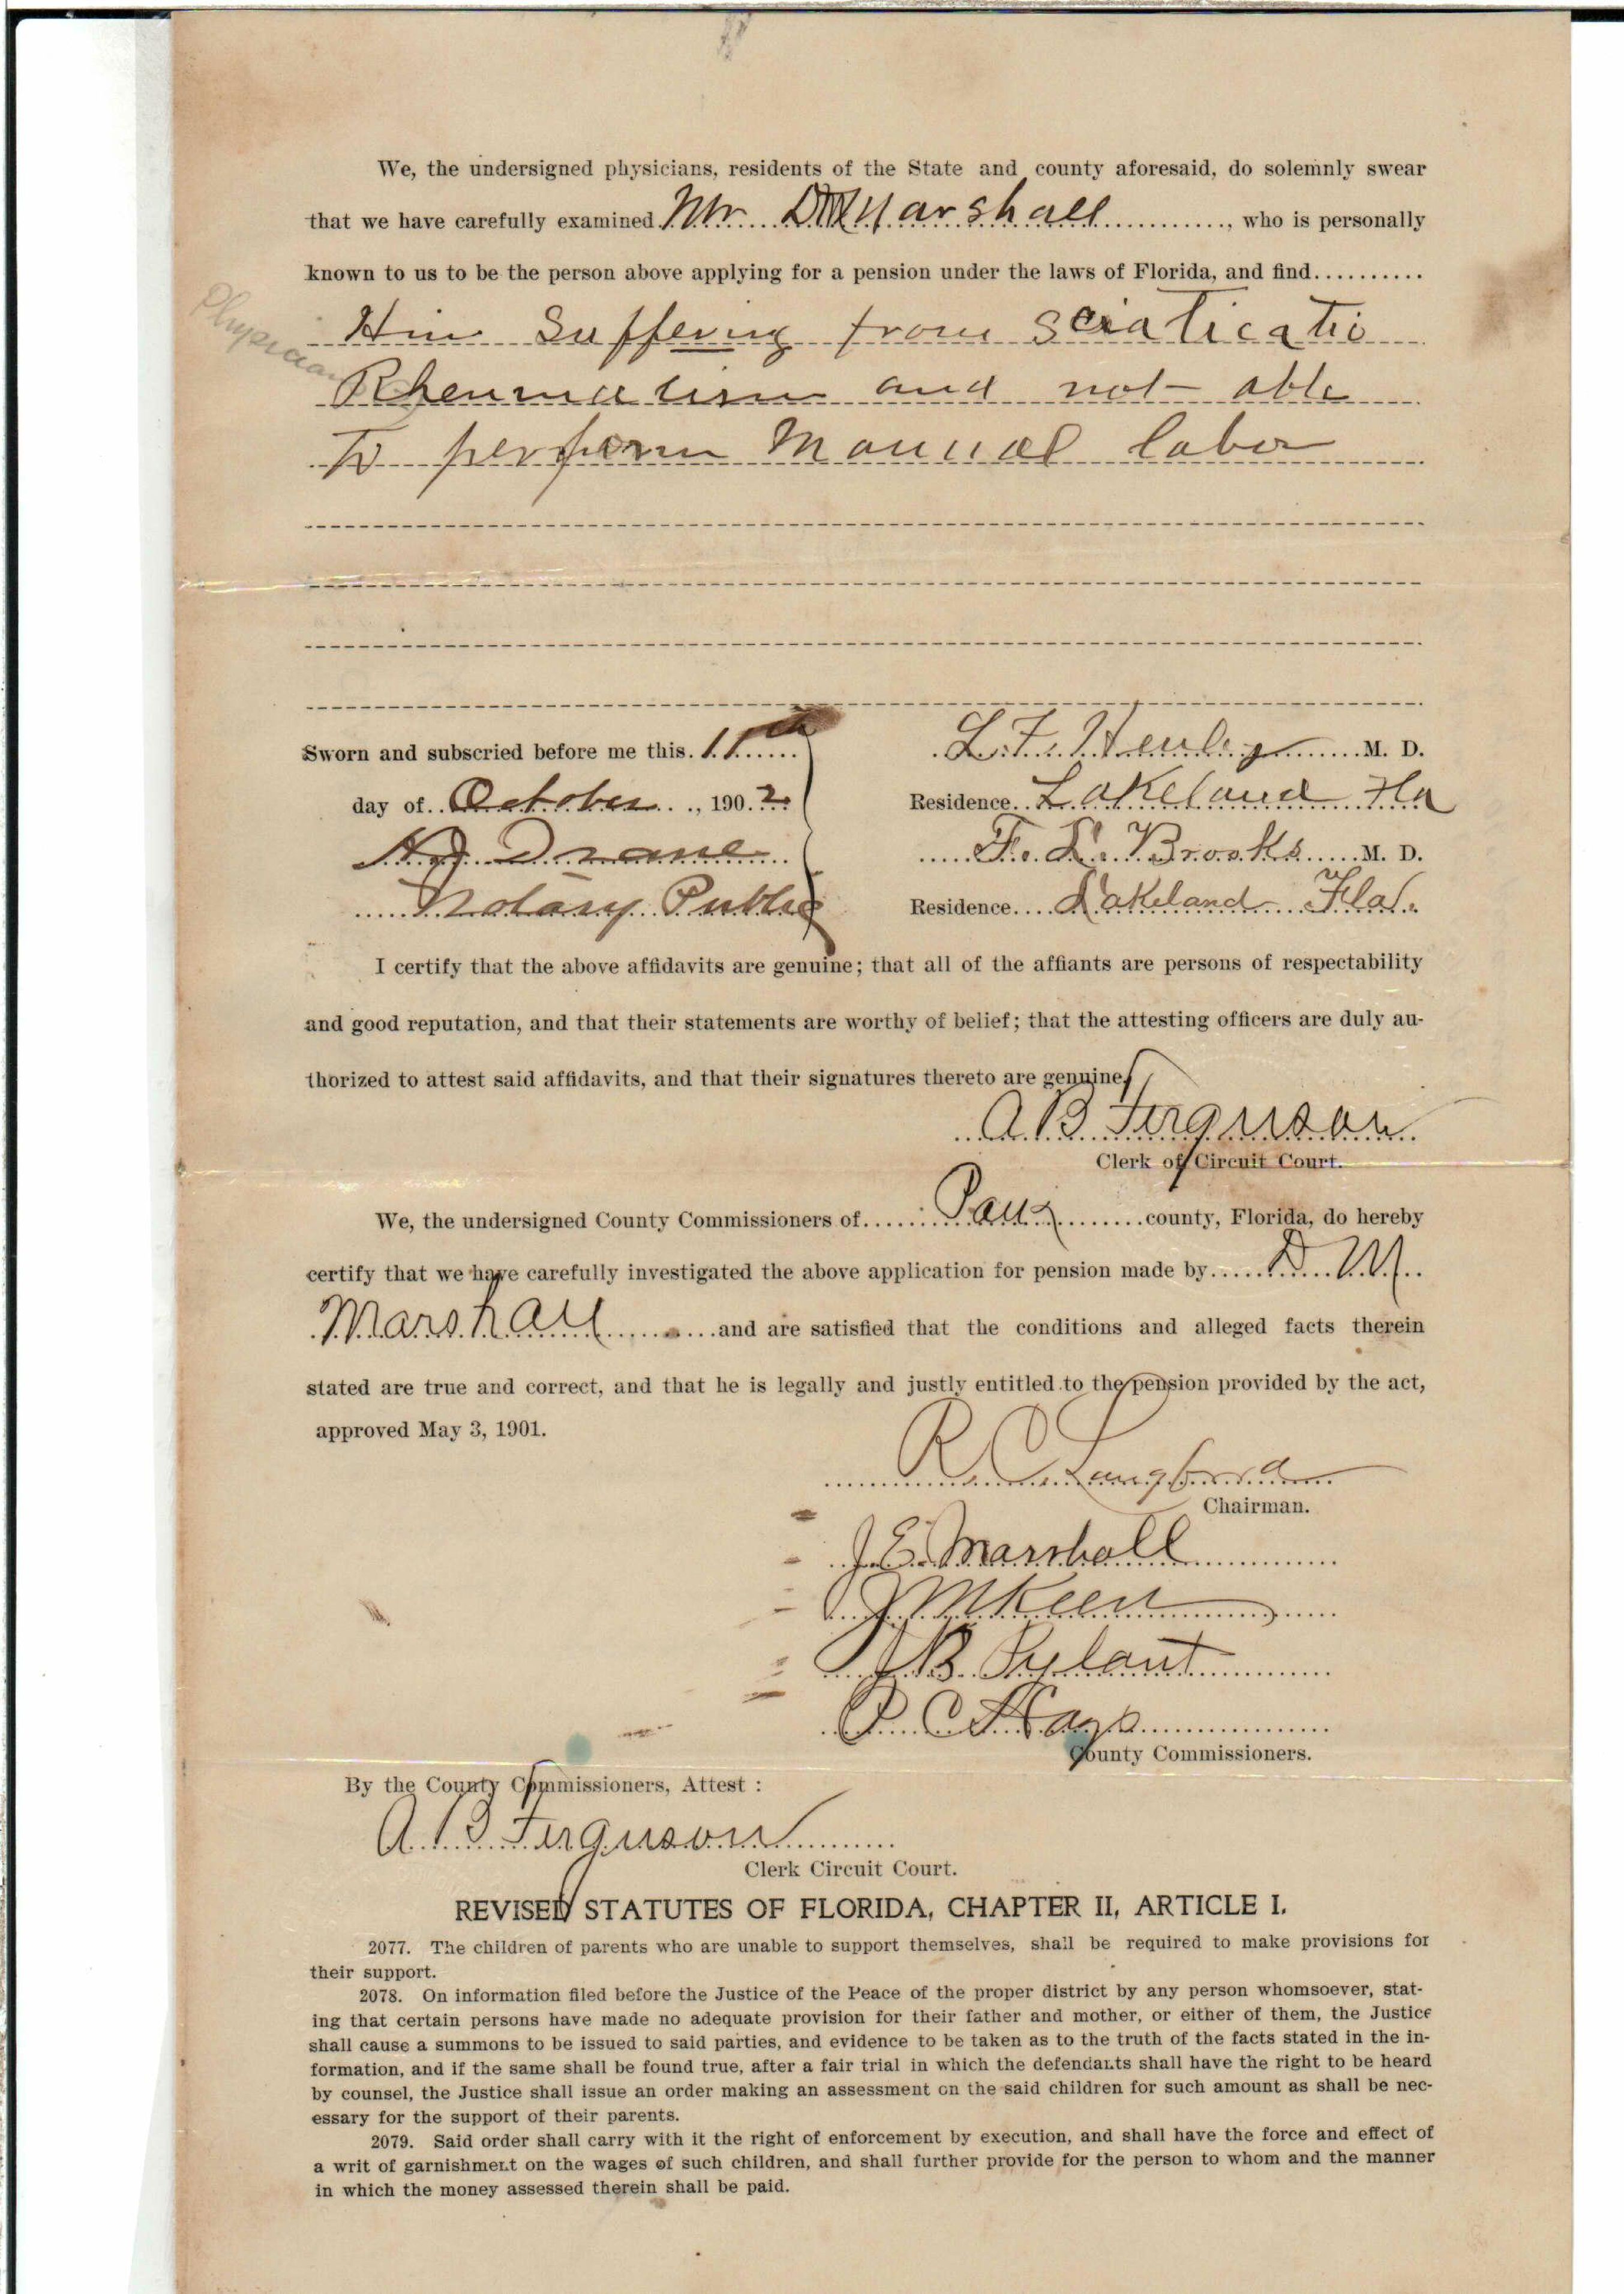 We, the undersigned physicians, residents of the State and county aforesaid, do solemnly swear
that we have carefully examined Mr. D M Marshall, who is personally
known to us to be the person above applying for a pension under the laws of Florida, and find
Physician
Him suffering from sciaticatic
Rheumatism and not able
To perform Manual labor
Sworn and subscried before me this 11th
day of October, 1902
H J Drane
Notary Public
L. F. Henley M. D.
Residence Lakeland Fla
F. L. Brooks M. D.
Residence Lakeland Fla.
I certify that the above affidavits are genuine; that all of the affiants are persons of respectability
and good reputation, and that their statements are worthy of belief; that the attesting officers are duly au-
thorized to attest said affidavits, and that their signatures thereto are genuine.
A B Ferguson
Clerk of Circuit Court.
We, the undersigned County Commissioners of county, Florida, do hereby
certify that we have carefully investigated the above application for pension made by D. M.
Marshall and are satisfied that the conditions and alleged facts therein
stated are true and correct, and that he is legally and justly entitled to the pension provided by the act,
approved May 3, 1901.
R. C. Langford
Chairman.
J. E. Marshall
J M Keen
J B Pylant
P C Hays
County Commissioners.
By the County Commissioners, Attest :
A B Ferguson
Clerk Circuit Court.
REVISED STATUTES OF FLORIDA, CHAPTER II, ARTICLE I.
2077. The children of parents who are unable to support themselves, shall be required to make provisions for
their support.
2078. On information filed before the Justice of the Peace of the proper district by any person whomsoever, stat-
ing that certain persons have made no adequate provision for their father and mother, or either of them, the Justice
shall cause a summons to be issued to said parties, and evidence to be taken as to the truth of the facts stated in the in-
formation, and if the same shall be found true, after a fair trial in which the defendants shall have the right to be heard
by counsel, the Justice shall issue an order making an assessment on the said children for such amount as shall be nec-
essary for the support of their parents.
2079. Said order shall carry with it the right of enforcement by execution, and shall have the force and effect of
a writ of garnishment on the wages of such children, and shall further provide for the person to whom and the manner
in which the money assessed therein shall be paid.